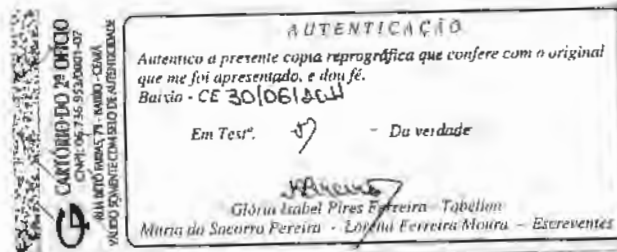 CARTÓRIO DO 2º OFÍCIO
CNPJ: 06.736.953/0001-07
RUA FARIAS, 71 - BAIXIO - CEARÁ
VÁLIDO SOMENTE COM SELO DE AUTENTICIDADE
AUTENTICAÇÃO
Autentico a presente copia reprográfica que confere com o original
que me foi apresentado, e dou fé.
Baixio - CE 30/06/2011
Em Testº. - Da verdade
Glória Isabel Pires Ferreira - Tabeliou
Maria do Socorro Pereira - Ferreira Moura - Escreventes